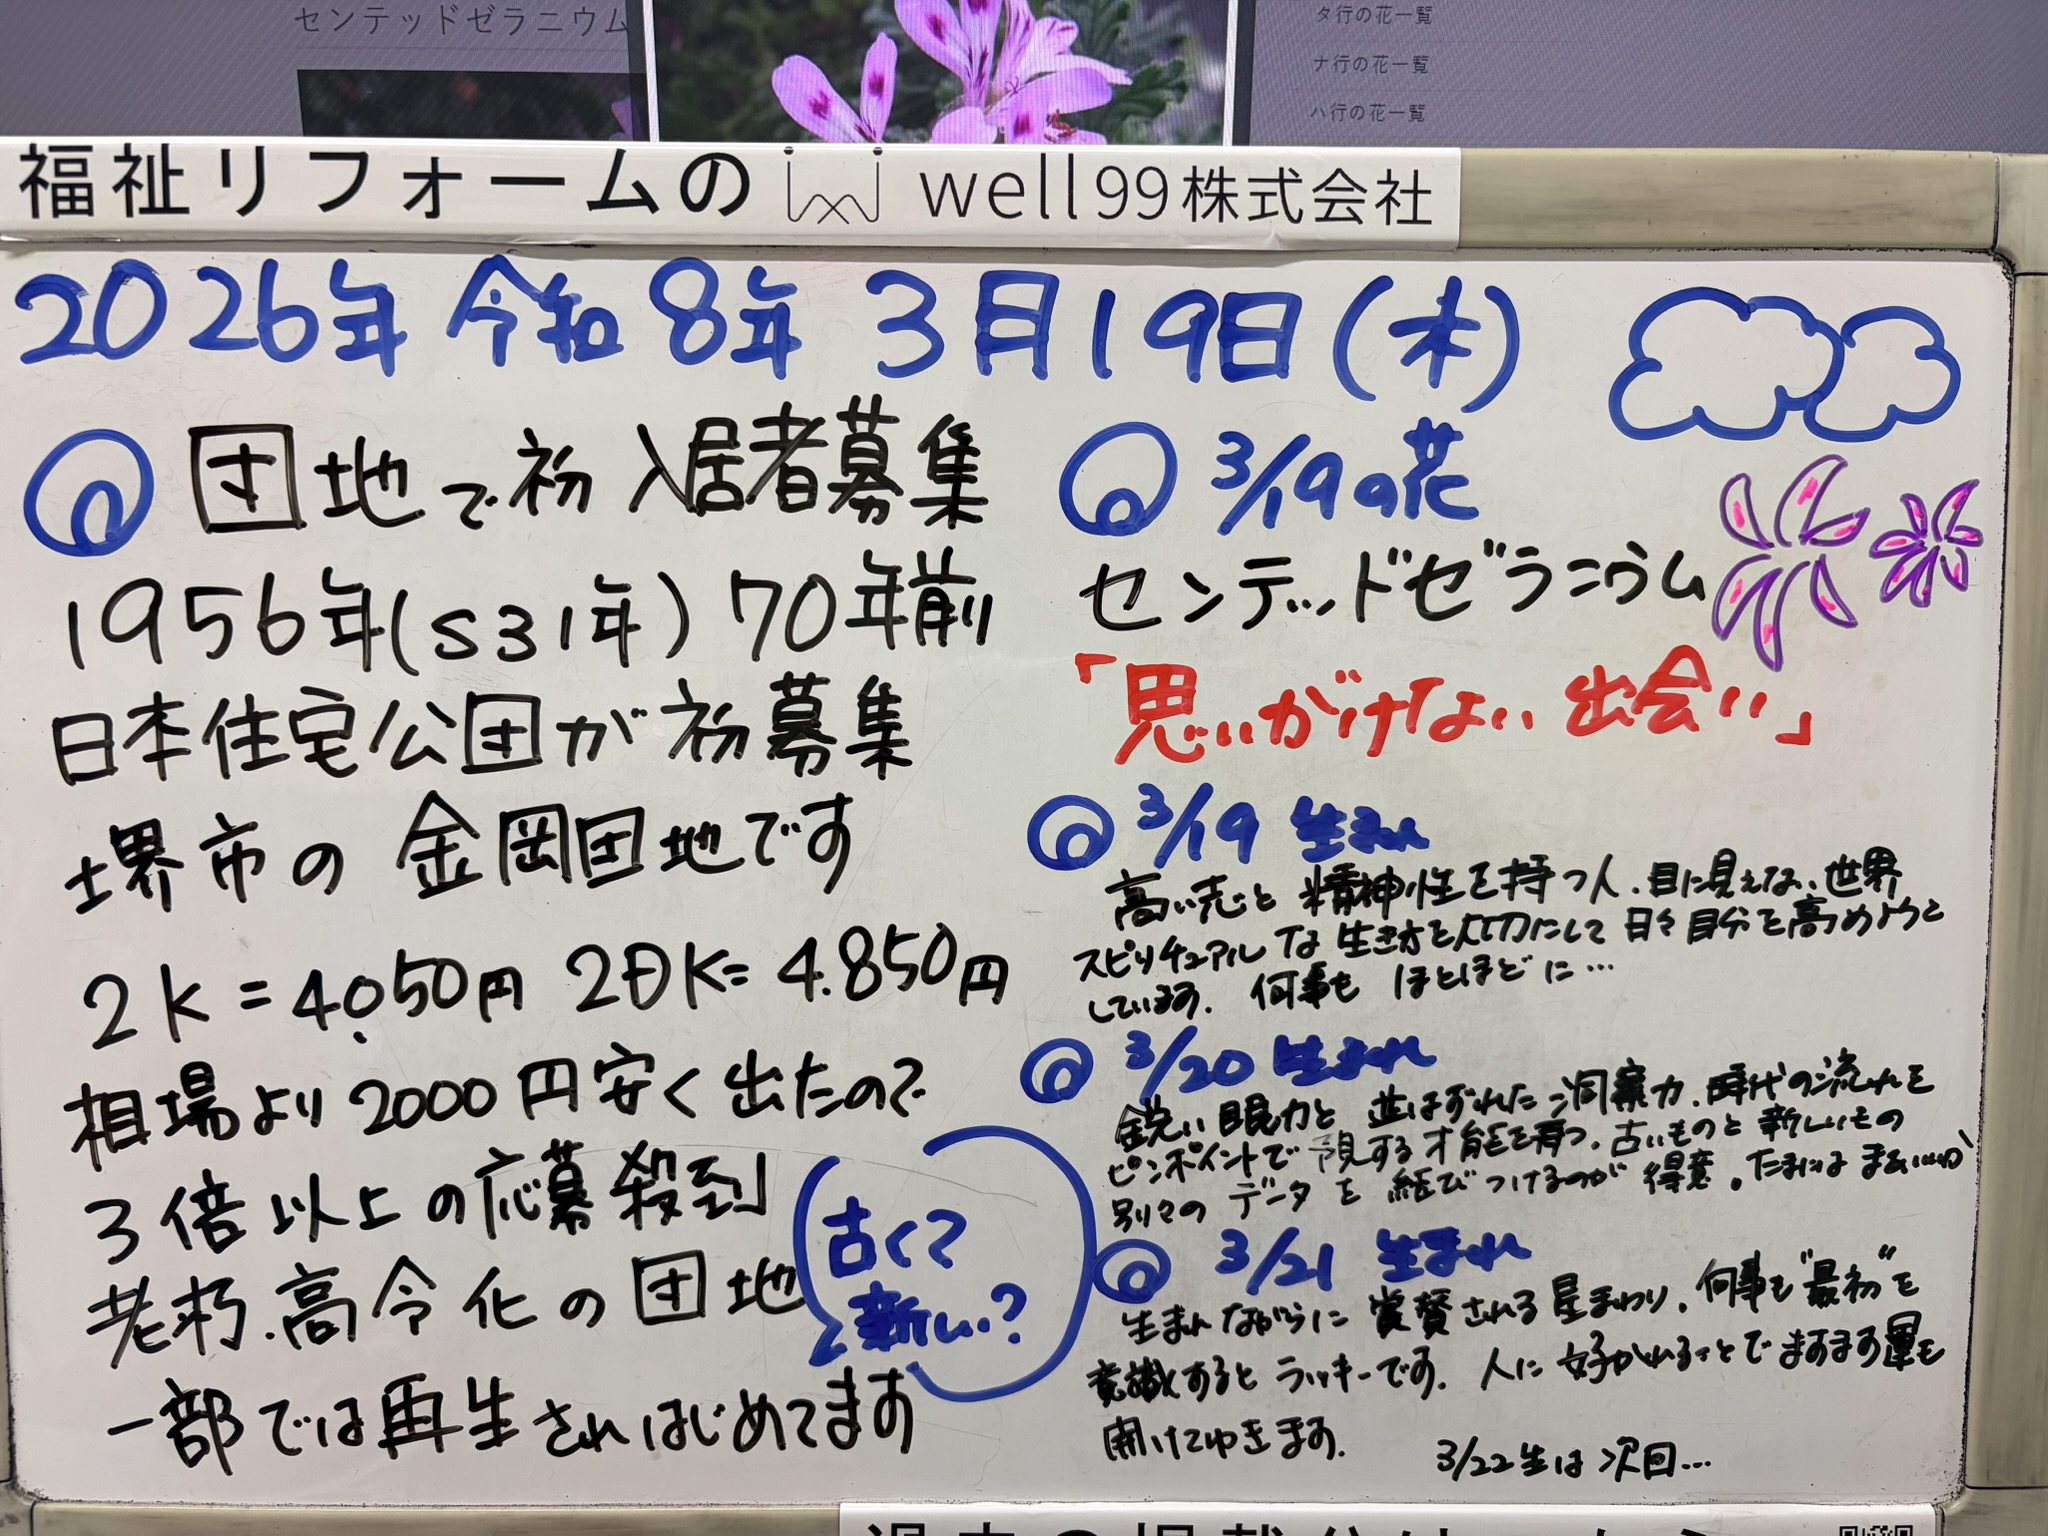 センテッドゼラニウム
タ行の花一覧
ナ行の花一覧
ハ行の花一覧
福祉リフォームの well99株式会社
2026年 令和8年 3月19日(木)
団地で初 入居者募集
1956年(S31年) 70年前
日本住宅公団が初募集
堺市の 金岡団地です
2K=4.050円 2DK=4.850円
相場より2000円安く出たので
3倍以上の応募殺到
老朽.高令化の団地
一部では再生されはじめてます
古くて
新しい?
3/19の花
センテッドゼラニウム
「思いがけない出会い」
3/19 生まれ
高い志と精神性を持つ人.目に見えない世界
スピリチュアルな生き方を大切にして日々自分を高めようと
しています. 何事も ほどほどに…
3/20 生まれ
鋭い眼力と並はずれた洞察力.時代の流れを
ピンポイントで予見する才能を持つ.古いものと新しいもの
別々のデータを結びつけるのが得意。たまにはまあいいか
3/21 生まれ
生まれながらに賞賛される星まわり.何事も"最初"を
意識するとラッキーです. 人に好かれることでますます運も
開けてゆきます.
3/22生は次回…